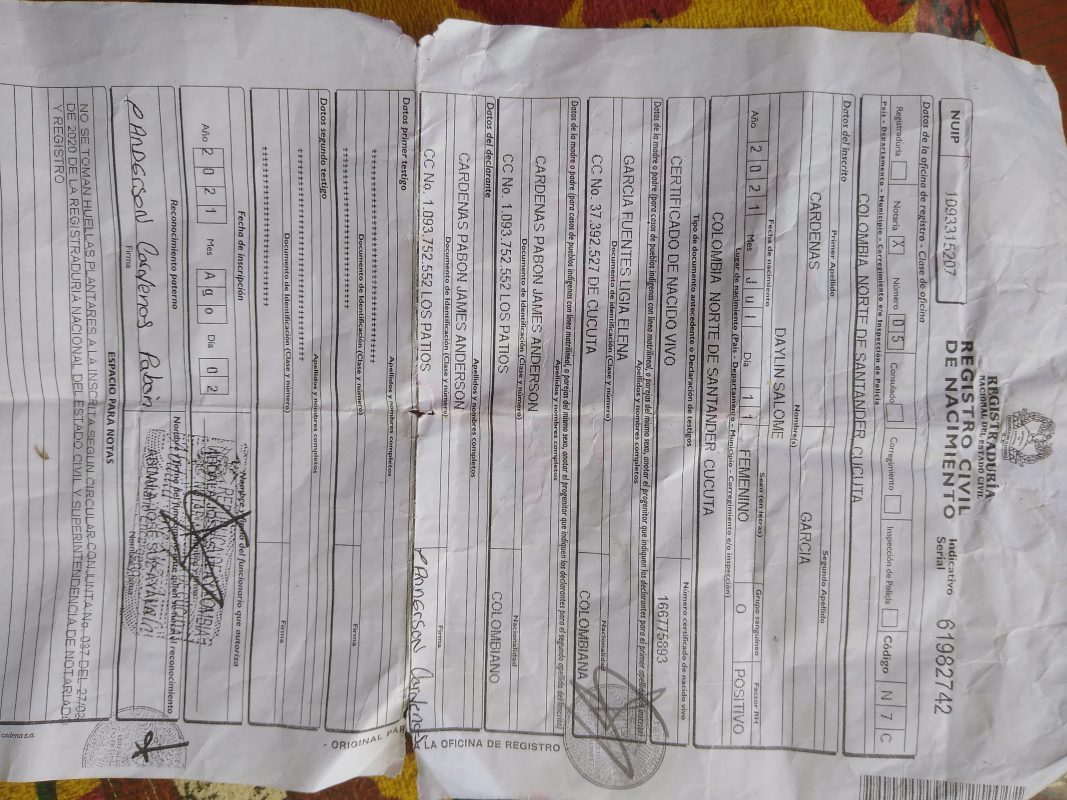 REGISTRADURÍA
NACIONAL DEL ESTADO CIVIL
REGISTRO CIVIL
DE NACIMIENTO
Indicativo
Serial 61982742
NUIP 1093315207
Datos de la oficina de registro - Clase de oficina
Registraduría Notaría X Número 05 Consulado Corregimiento Inspección de Policía Código N 7 C
País - Departamento - Municipio - Corregimiento e/o Inspección de Policía
COLOMBIA NORTE DE SANTANDER CUCUTA
Datos del Inscrito
Primer Apellido Segundo Apellido
CARDENAS GARCIA
Nombre(s)
DAYLIN SALOME
Fecha de nacimiento Sexo (en letras) Grupo sanguíneo Factor RH
Año 2021 Mes Jul Día 11 FEMENINO O POSITIVO
Lugar de nacimiento (País - Departamento - Municipio - Corregimiento e/o inspección)
COLOMBIA NORTE DE SANTANDER CUCUTA
Tipo de documento antecedente o Declaración de testigos Número certificado de nacido vivo
CERTIFICADO DE NACIDO VIVO 166775893
Datos de la madre o padre (para casos de pueblos indígenas con línea matrilineal, o parejas del mismo sexo, anotar el progenitor que indiquen los declarantes para el primer apellido del inscrito)
Apellidos y nombres completos
GARCIA FUENTES LIGIA ELENA
Documento de Identificación (Clase y número) Nacionalidad
CC No. 37.392.527 DE CUCUTA COLOMBIANA
Datos de la madre o padre (para casos de pueblos indígenas con línea matrilineal, o parejas del mismo sexo, anotar el progenitor que indiquen los declarantes para el segundo apellido del inscrito)
Apellidos y nombres completos
CARDENAS PABON JAMES ANDERSON
Documento de Identificación (Clase y número) Nacionalidad
CC No. 1.093.752.552 LOS PATIOS COLOMBIANO
Datos del declarante
Apellidos y nombres completos
CARDENAS PABON JAMES ANDERSON
Documento de Identificación (Clase y número) Firma
CC No. 1.093.752.552 LOS PATIOS Cardenas
Datos primer testigo
Apellidos y nombres completos
Documento de Identificación (Clase y número) Firma
Datos segundo testigo
Apellidos y nombres completos
Documento de Identificación (Clase y número) Firma
Fecha de inscripción Nombre y firma del funcionario que autoriza
Año 2021 Mes Ago Día 02
Reconocimiento paterno
Cardenas Pabón
Firma
ESPACIO PARA NOTAS
NO SE TOMAN HUELLAS PLANTARES A LA INSCRITA SEGUN CIRCULAR CONJUNTA No. 037 DEL
DE 2020 DE LA REGISTRADURIA NACIONAL DE ESTADO CIVIL Y SUPERINTENDENCIA DE NOTARIADO
Y REGISTRO
LA OFICINA DE REGISTRO
cadena s.a.